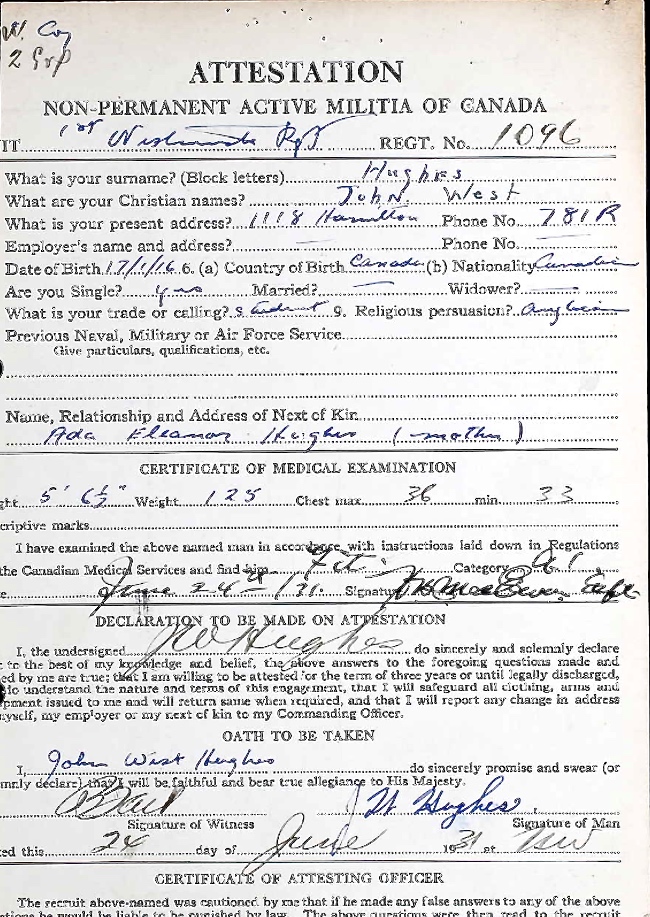 W. Coy
2 Grp
ATTESTATION
NON-PERMANENT ACTIVE MILITIA OF CANADA
IT 1st Westminster Rgt REGT. No. 1096
What is your surname? (Block letters) Hughes
What are your Christian names? John West
What is your present address? 1118 Hamilton Phone No. 781R
Employer's name and address? — Phone No. —
Date of Birth 17/1/16 6. (a) Country of Birth Canada (b) Nationality Canadian
Are you Single? yes Married? — Widower? —
What is your trade or calling? Student 9. Religious persuasion? Anglican
Previous Naval, Military or Air Force Service
Give particulars, qualifications, etc.
Name, Relationship and Address of Next of Kin
Ada Eleanor Hughes (mother)
CERTIFICATE OF MEDICAL EXAMINATION
ght 5' 6½" Weight 125 Chest max. 36 min 33
criptive marks
I have examined the above named man in accordance with instructions laid down in Regulations
the Canadian Medical Services and find him Fit Category A1
e June 24th /31. Signature
DECLARATION TO BE MADE ON ATTESTATION
I, the undersigned JW Hughes do sincerely and solemnly declare
t to the best of my knowledge and belief, the above answers to the foregoing questions made and
ed by me are true; that I am willing to be attested for the term of three years or until legally discharged,
do understand the nature and terms of this engagement, that I will safeguard all clothing, arms and
pment issued to me and will return same when required, and that I will report any change in address
myself, my employer or my next of kin to my Commanding Officer.
OATH TO BE TAKEN
I, John West Hughes do sincerely promise and swear (or
mnly declare) that I will be faithful and bear true allegiance to His Majesty.
J W Hughes
Signature of Witness Signature of Man
ed this 24 day of June 1931 at NW
CERTIFICATE OF ATTESTING OFFICER
The recruit above-named was cautioned by me that if he made any false answers to any of the above
tions he would be liable to be punished by law. The above questions were then read to the recruit